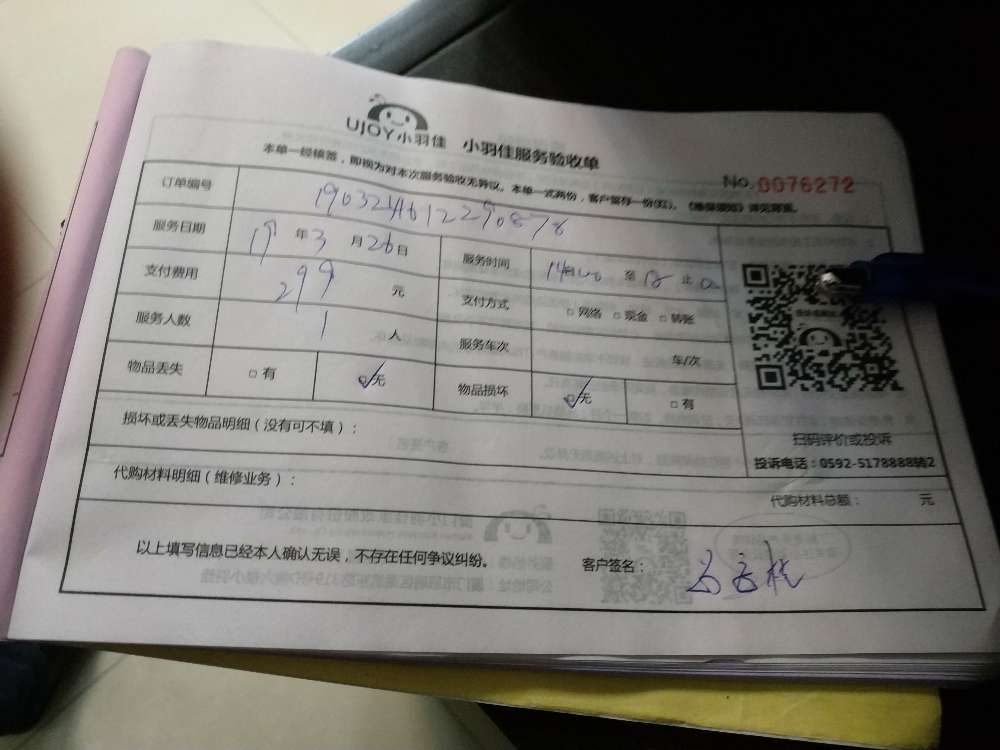 UJOY小羽佳 小羽佳服务验收单
本单一经核签，即视为对本次服务验收无异议。本单一式两份，客户留存一份(红)，《维保须知》详见背面。
No.0076272
订单编号 1903244612290878
服务日期 19年3月26日 服务时间 14 至 18 止
支付费用 299 元 支付方式 □网络 □现金 □转账
服务人数 1 人 服务车次 车/次
物品丢失 □有 ☑无 物品损坏 ☑无 □有
扫码评价或投诉
投诉电话：0592-5178888转2
损坏或丢失物品明细（没有可不填）：
代购材料明细（维修业务）：
代购材料总额： 元
以上填写信息已经本人确认无误，不存在任何争议纠纷。 客户签名：